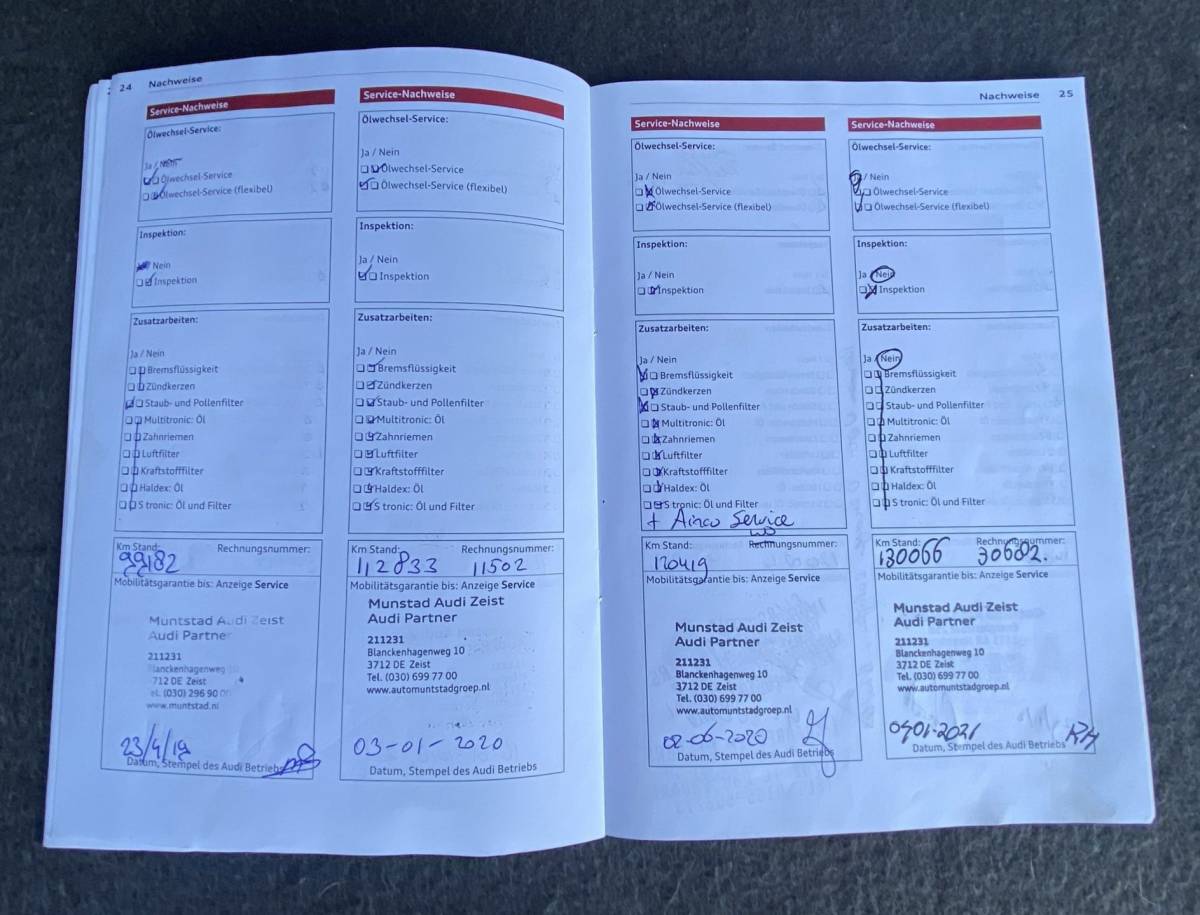 24 Nachweise
Service-Nachweise
Ölwechsel-Service:
Ja / Nein
Ölwechsel-Service
Ölwechsel-Service (flexibel)
Inspektion:
Nein
Inspektion
Zusatzarbeiten:
Ja / Nein
Bremsflüssigkeit
Zündkerzen
Staub- und Pollenfilter
Multitronic: Öl
Zahnriemen
Luftfilter
Kraftstofffilter
Haldex: Öl
S tronic: Öl und Filter
Km Stand: Rechnungsnummer:
99182
Mobilitätsgarantie bis: Anzeige Service
Muntstad Audi Zeist
Audi Partner
211231
Blanckenhagenweg
712 DE Zeist
el. (030) 296 90
www.muntstad.nl
23/4/19
Datum, Stempel des Audi Betriebs
Service-Nachweise
Ölwechsel-Service:
Ja / Nein
Ölwechsel-Service
Ölwechsel-Service (flexibel)
Inspektion:
Ja / Nein
Inspektion
Zusatzarbeiten:
Ja / Nein
Bremsflüssigkeit
Zündkerzen
Staub- und Pollenfilter
Multitronic: Öl
Zahnriemen
Luftfilter
Kraftstofffilter
Haldex: Öl
S tronic: Öl und Filter
Km Stand: Rechnungsnummer:
112833 11502
Mobilitätsgarantie bis: Anzeige Service
Munstad Audi Zeist
Audi Partner
211231
Blanckenhagenweg 10
3712 DE Zeist
Tel. (030) 699 77 00
www.automuntstadgroep.nl
03-01-2020
Datum, Stempel des Audi Betriebs
Nachweise 25
Service-Nachweise
Ölwechsel-Service:
Ja / Nein
Ölwechsel-Service
Ölwechsel-Service (flexibel)
Inspektion:
Ja / Nein
Inspektion
Zusatzarbeiten:
Ja / Nein
Bremsflüssigkeit
Zündkerzen
Staub- und Pollenfilter
Multitronic: Öl
Zahnriemen
Luftfilter
Kraftstofffilter
Haldex: Öl
S tronic: Öl und Filter
+ Airco Service
Km Stand: Rechnungsnummer:
120419
Mobilitätsgarantie bis: Anzeige Service
Munstad Audi Zeist
Audi Partner
211231
Blanckenhagenweg 10
3712 DE Zeist
Tel. (030) 699 77 00
www.automuntstadgroep.nl
02-06-2020
Datum, Stempel des Audi Betriebs
Service-Nachweise
Ölwechsel-Service:
Ja / Nein
Ölwechsel-Service
Ölwechsel-Service (flexibel)
Inspektion:
Ja / Nein
Inspektion
Zusatzarbeiten:
Ja / Nein
Bremsflüssigkeit
Zündkerzen
Staub- und Pollenfilter
Multitronic: Öl
Zahnriemen
Luftfilter
Kraftstofffilter
Haldex: Öl
S tronic: Öl und Filter
Km Stand: Rechnungsnummer:
130066 30682.
Mobilitätsgarantie bis: Anzeige Service
Munstad Audi Zeist
Audi Partner
211231
Blanckenhagenweg 10
3712 DE Zeist
Tel. (030) 699 77 00
www.automuntstadgroep.nl
RH
Datum, Stempel des Audi Betriebs